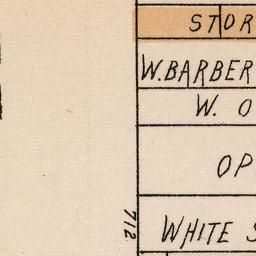 STOR
W. BARBER
W. O
OP
712
WHITE S